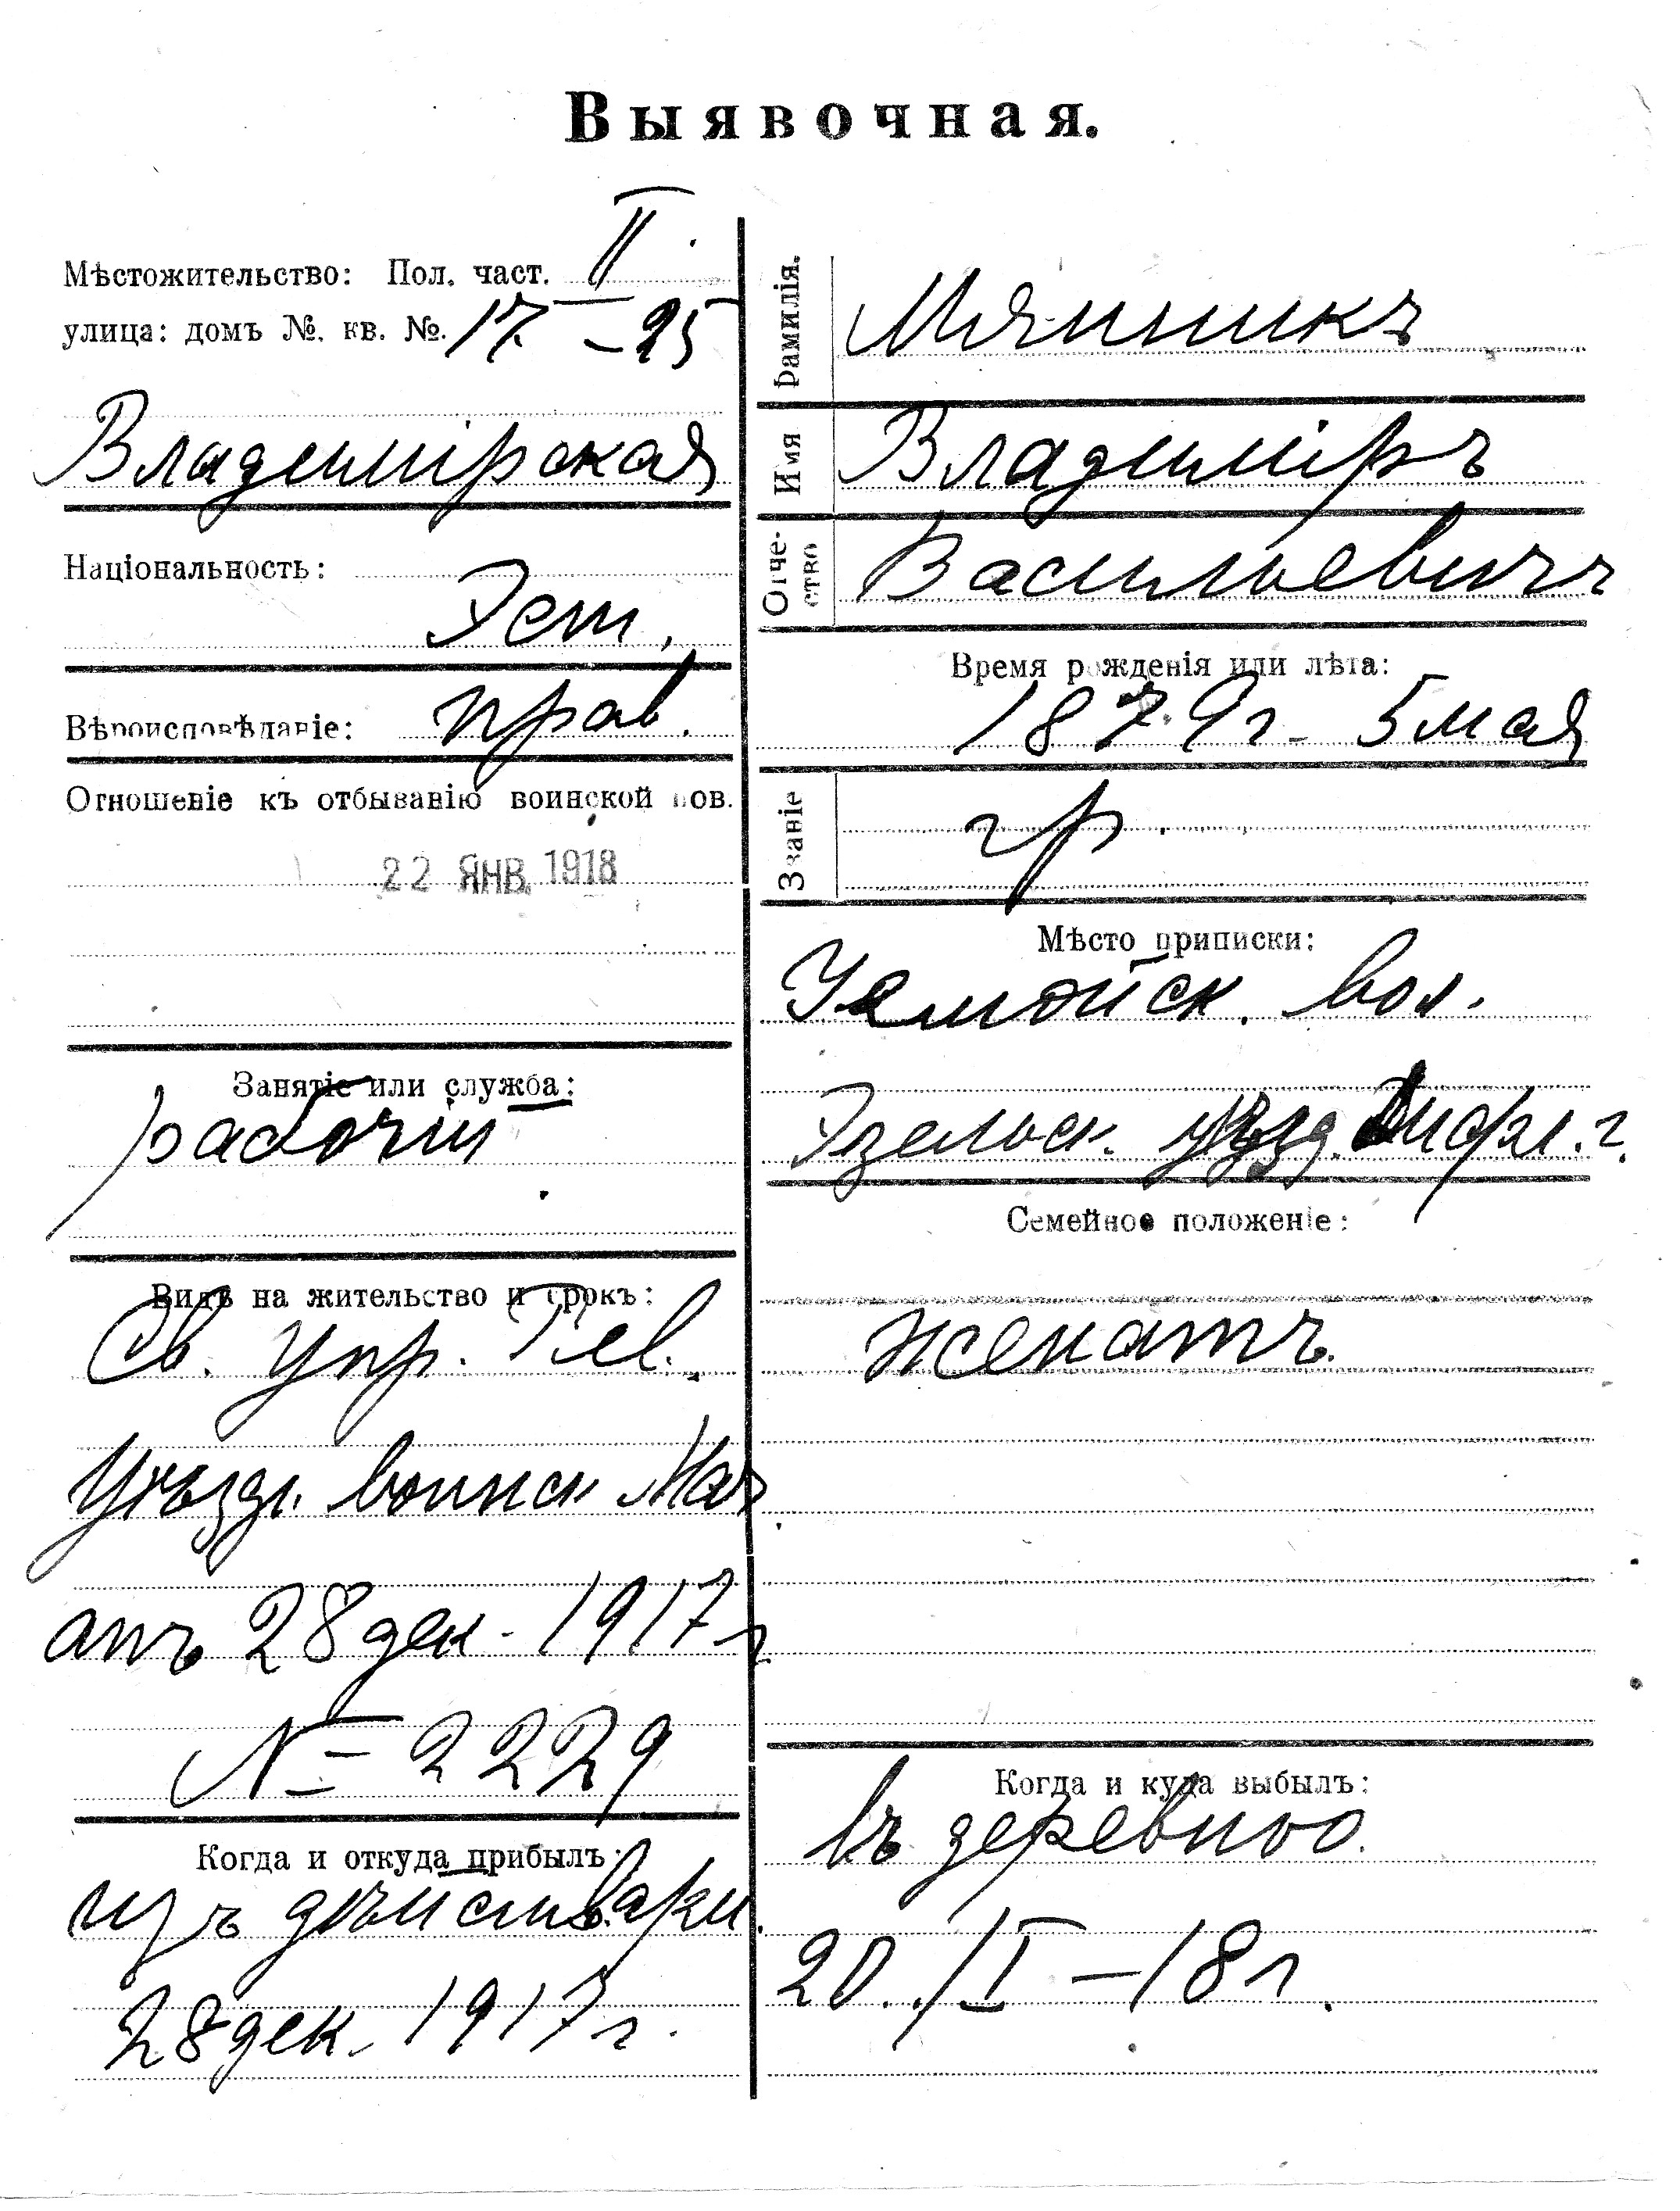 Выявочная.
Мѣстожительство: Пол. част. II.
улица: домъ №. кв. №. 17 – 25
Владимірская
Національность:
Эст.
Вѣроисповѣданіе: прав.
Отношеніе къ отбыванію воинской пов.
22 ЯНВ. 1918
Занятіе или служба:
рабочій
Видъ на жительство и срокъ:
Св. Упр. Рев.
Уѣздн. воинск. Нач
отъ 28 дек. 1917 г
№ 2229
Когда и откуда прибылъ:
изъ дѣйств. арм.
28 дек. 1917 г.
Фамилія.
Мянникъ
Имя
Владиміръ
Отче-
ство
Васильевичъ
Время рожденія или лѣта:
1879 г. 5 мая
Званіе
гр.
Мѣсто приписки:
вол.
Эзельск. уѣзд. Лифл. г.
Семейное положеніе:
женатъ.
Когда и куда выбылъ:
въ деревню.
20. – 18 г.